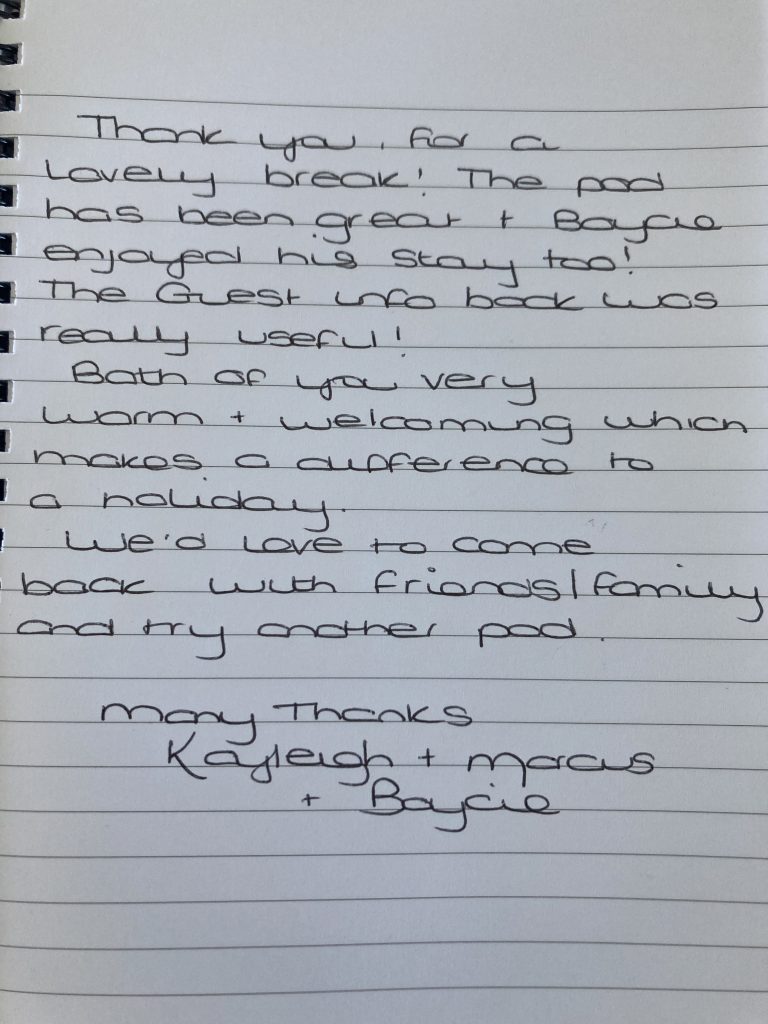 Thank you, for a
Lovely break! The pod
has been great + Boycie
enjoyed his stay too!
The Guest info book was
really useful!
Both of you very
warm + welcoming which
makes a difference to
a holiday.
We'd love to come
back with friends/family
and try another pod.
Many Thanks
Kayleigh + Marcus
+ Boycie